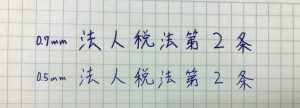 0.7mm 法人税法第2条
0.5mm 法人税法第2条